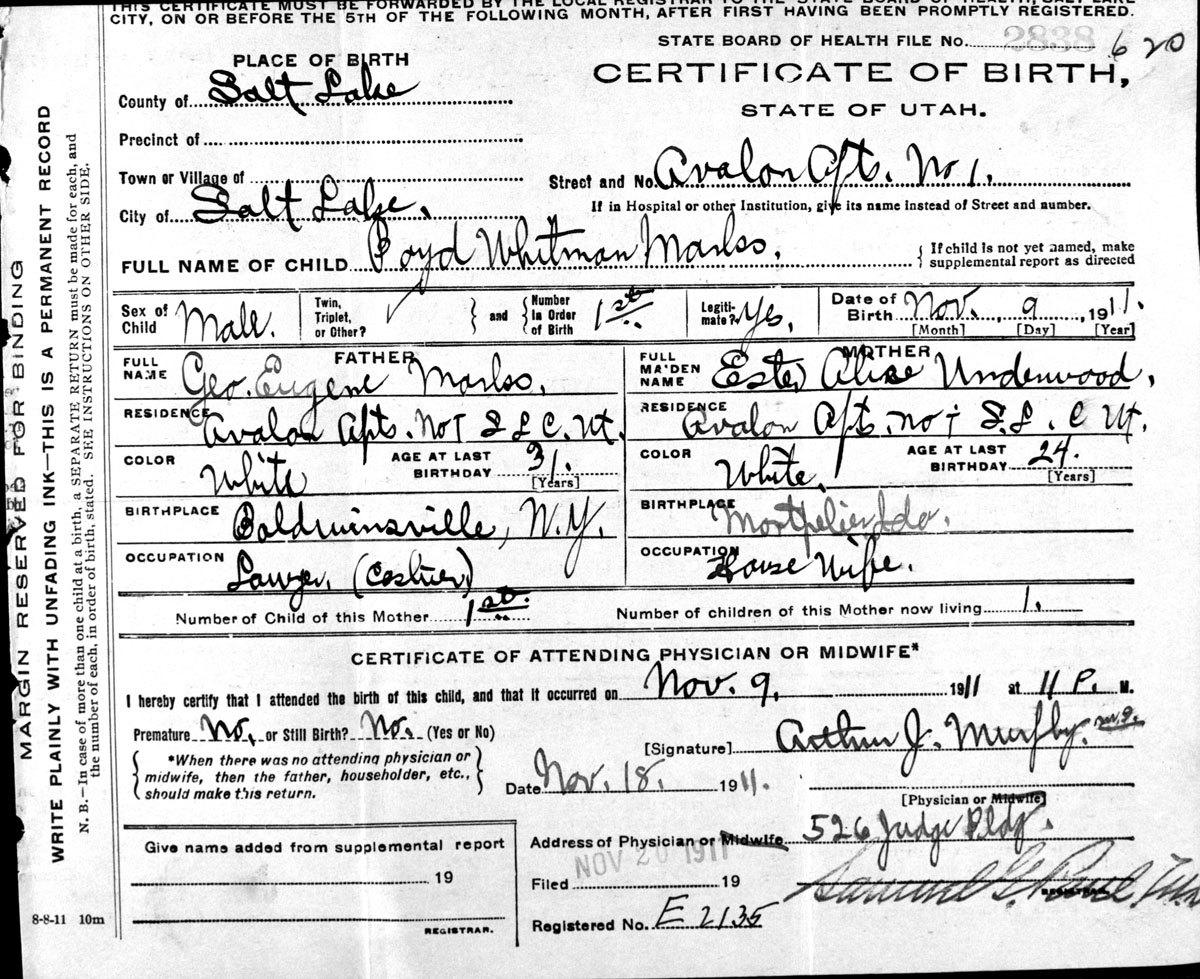 THIS CERTIFICATE MUST BE FORWARDED BY THE LOCAL REGISTRAR TO THE STATE BOARD OF HEALTH, SALT LAKE
CITY, ON OR BEFORE THE 5TH OF THE FOLLOWING MONTH, AFTER FIRST HAVING BEEN PROMPTLY REGISTERED.
STATE BOARD OF HEALTH FILE No. 2838 620
PLACE OF BIRTH
CERTIFICATE OF BIRTH,
STATE OF UTAH.
County of Salt Lake
Precinct of
Town or Village of
Street and No. Avalon Apts. No 1.
City of Salt Lake.
If in Hospital or other Institution, give its name instead of Street and number.
FULL NAME OF CHILD Boyd Whitman Marks.
If child is not yet named, make supplemental report as directed
Sex of Child Male. Twin, Triplet, or Other? and Number in Order of Birth 1st Legitimate? Yes. Date of Birth Nov. 9, 1911.
[Month] [Day] [Year]
FATHER
FULL NAME Geo. Eugene Marks.
RESIDENCE Avalon Apts. No 1 S L C. Ut.
COLOR White AGE AT LAST BIRTHDAY 31. [Years]
BIRTHPLACE Baldwinsville, N.Y.
OCCUPATION Lawyer.
MOTHER
FULL MAIDEN NAME Underwood.
RESIDENCE Avalon Apts. No 1 S. L. C Ut.
COLOR White. AGE AT LAST BIRTHDAY 24. [Years]
BIRTHPLACE Montpelier Ido.
OCCUPATION House Wife.
Number of Child of this Mother 1st Number of children of this Mother now living 1.
CERTIFICATE OF ATTENDING PHYSICIAN OR MIDWIFE*
I hereby certify that I attended the birth of this child, and that it occurred on Nov. 9. 1911 at 11 P. M.
Premature No. or Still Birth? No. (Yes or No)
[Signature] Arthur J. Murphy.
*When there was no attending physician or
midwife, then the father, householder, etc.,
should make this return.
Date Nov. 18. 1911.
[Physician or Midwife]
Address of Physician or Midwife 526 Judge Bldg.
Give name added from supplemental report
19
REGISTRAR.
NOV 20 1911
Filed 19
Samuel G. REGISTRAR.
Registered No. E 2135
8-8-11 10m
MARGIN RESERVED FOR BINDING
WRITE PLAINLY WITH UNFADING INK—THIS IS A PERMANENT RECORD
N. B.—In case of more than one child at a birth, a SEPARATE RETURN must be made for each, and
the number of each, in order of birth, stated. SEE INSTRUCTIONS ON OTHER SIDE.